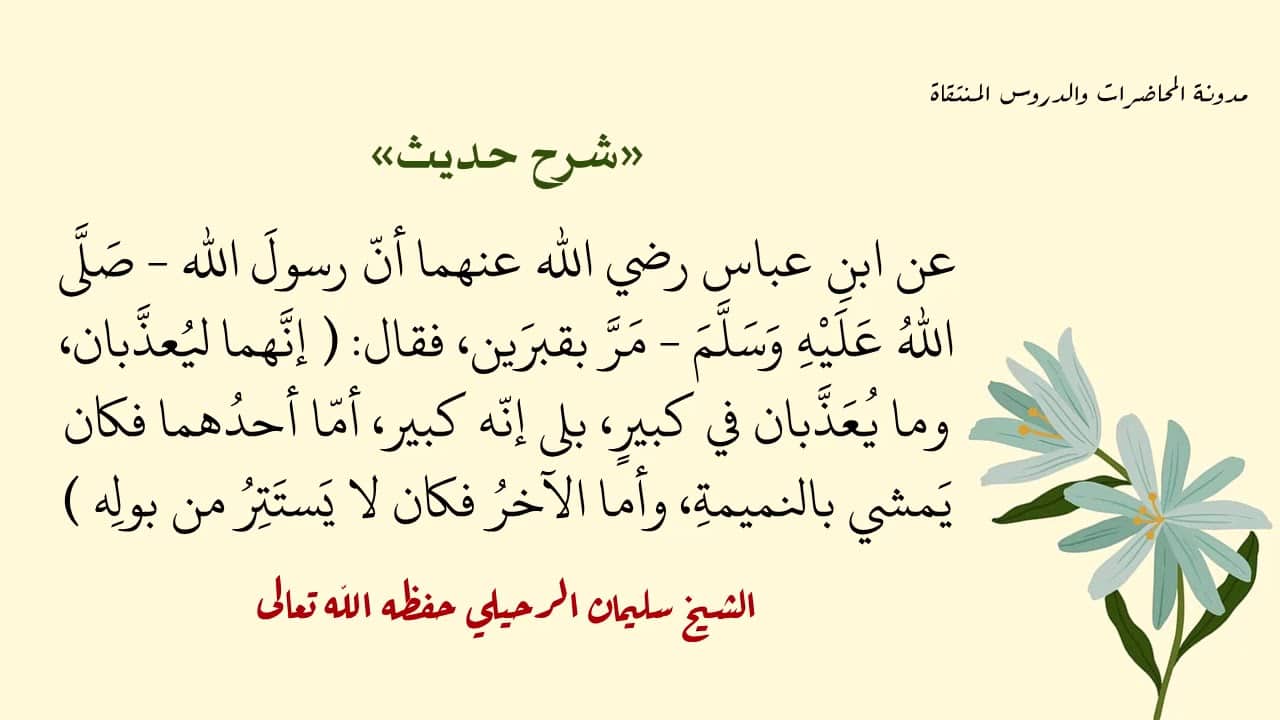 مدونة المحاضرات والدروس المنتقاة
«شرح حديث»
عن ابنِ عباس رضي الله عنهما أنّ رسولَ الله - صَلَّى
اللهُ عَلَيْهِ وَسَلَّمَ - مَرَّ بقبرَين، فقال: ( إنَّهما ليُعذَّبان،
وما يُعَذَّبان في كبيرٍ، بلى إنّه كبير، أمّا أحدُهما فكان
يَمشي بالنميمةِ، وأما الآخرُ فكان لا يَستَتِرُ من بولِه )
الشيخ سليمان الرحيلي حفظه الله تعالى